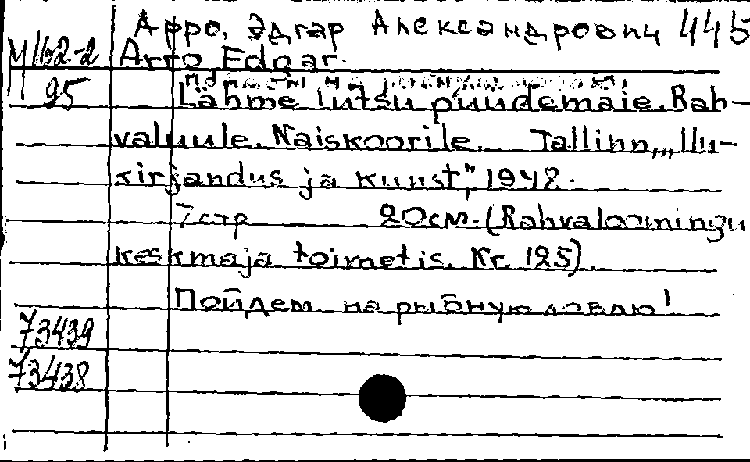 Арро, Эдгар Александрович 445
М 162-2 Arro Edgar.
95 Lähme lutsu püüdemaie. Rah-
valuule. Naiskoorile. Tallinn, „Ilu-
kirjandus ja kunst", 1948.
7 стр 20см. (Rahvaloomingu
keskmaja toimetis. Nr. 125).
Пойдем на рыбную ловлю!
73439
73438